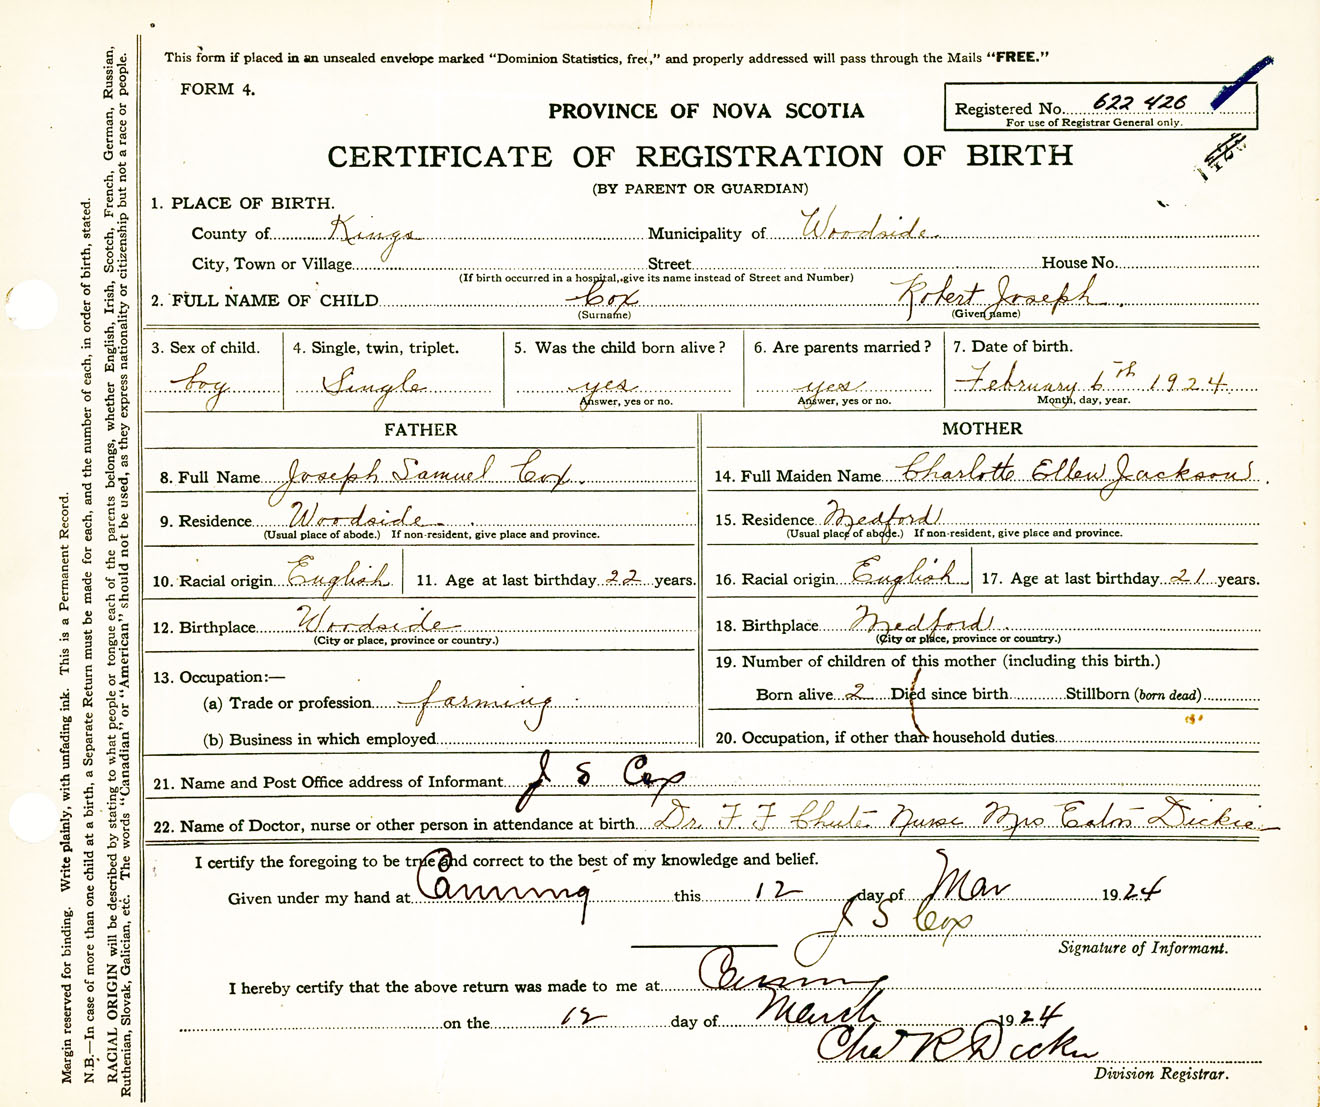 This form if placed in an unsealed envelope marked "Dominion Statistics, free," and properly addressed will pass through the Mails "FREE."
FORM 4.
Registered No. 622 426
For use of Registrar General only.
PROVINCE OF NOVA SCOTIA
CERTIFICATE OF REGISTRATION OF BIRTH
(BY PARENT OR GUARDIAN)
1. PLACE OF BIRTH.
County of Kings Municipality of Woodside
City, Town or Village Street House No.
(If birth occurred in a hospital, give its name instead of Street and Number)
2. FULL NAME OF CHILD Cox Robert Joseph
(Surname) (Given name)
3. Sex of child. 4. Single, twin, triplet. 5. Was the child born alive? 6. Are parents married? 7. Date of birth.
boy Single yes yes February 6th 1924
Answer, yes or no. Answer, yes or no. Month, day, year.
FATHER MOTHER
8. Full Name Joseph Samuel Cox. 14. Full Maiden Name Charlotte Ellen Jackson
9. Residence Woodside 15. Residence Medford
(Usual place of abode.) If non-resident, give place and province. (Usual place of abode.) If non-resident, give place and province.
10. Racial origin English 11. Age at last birthday 22 years. 16. Racial origin English 17. Age at last birthday 21 years.
12. Birthplace Woodside 18. Birthplace Medford
(City or place, province or country.) (City or place, province or country.)
13. Occupation:— 19. Number of children of this mother (including this birth.)
(a) Trade or profession farming Born alive 2 Died since birth Stillborn (born dead)
(b) Business in which employed 20. Occupation, if other than household duties
21. Name and Post Office address of Informant J S Cox
22. Name of Doctor, nurse or other person in attendance at birth Dr. F F Chute Nurse Mrs Eaton Dickie
I certify the foregoing to be true and correct to the best of my knowledge and belief.
Given under my hand at Canning this 12 day of Mar 1924
J S Cox
Signature of Informant.
I hereby certify that the above return was made to me at Canning
on the 12 day of March 1924
Chas R Dickie
Division Registrar.
Margin reserved for binding. Write plainly, with unfading ink. This is a Permanent Record.
N.B.—In case of more than one child at a birth, a Separate Return must be made for each, and the number of each, in order of birth, stated.
RACIAL ORIGIN will be described by stating to what people or tongue each of the parents belongs, whether English, Irish, Scotch, French, German, Russian,
Ruthenian, Slovak, Galician, etc. The words "Canadian" or "American" should not be used, as they express nationality or citizenship but not a race or people.